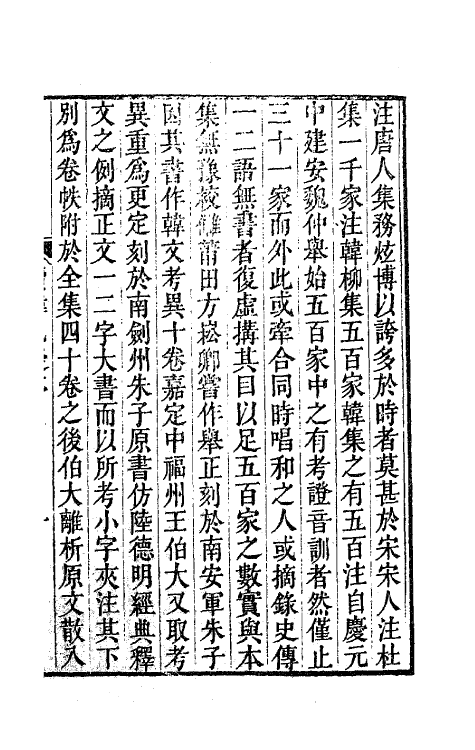 注唐人集務炫博以誇多於時者莫甚於宋宋人注杜
集一千家注韓柳集五百家韓集之有五百注自慶元
中建安魏仲舉始五百家中之有考證音訓者然僅止
三十一家而外此或牽合同時唱和之人或摘錄史傳
一二語無書者復虛搆其目以足五百家之數實與本
集無豫校讎莆田方崧卿嘗作舉正刻於南安軍朱子
因其書作韓文考異十卷嘉定中福州王伯大又取考
異重爲更定刻於南劍州朱子原書仿陸德明經典釋
文之例摘正文一二字大書而以所考小字夾注其下
別爲卷帙附於全集四十卷之後伯大離析原文散入